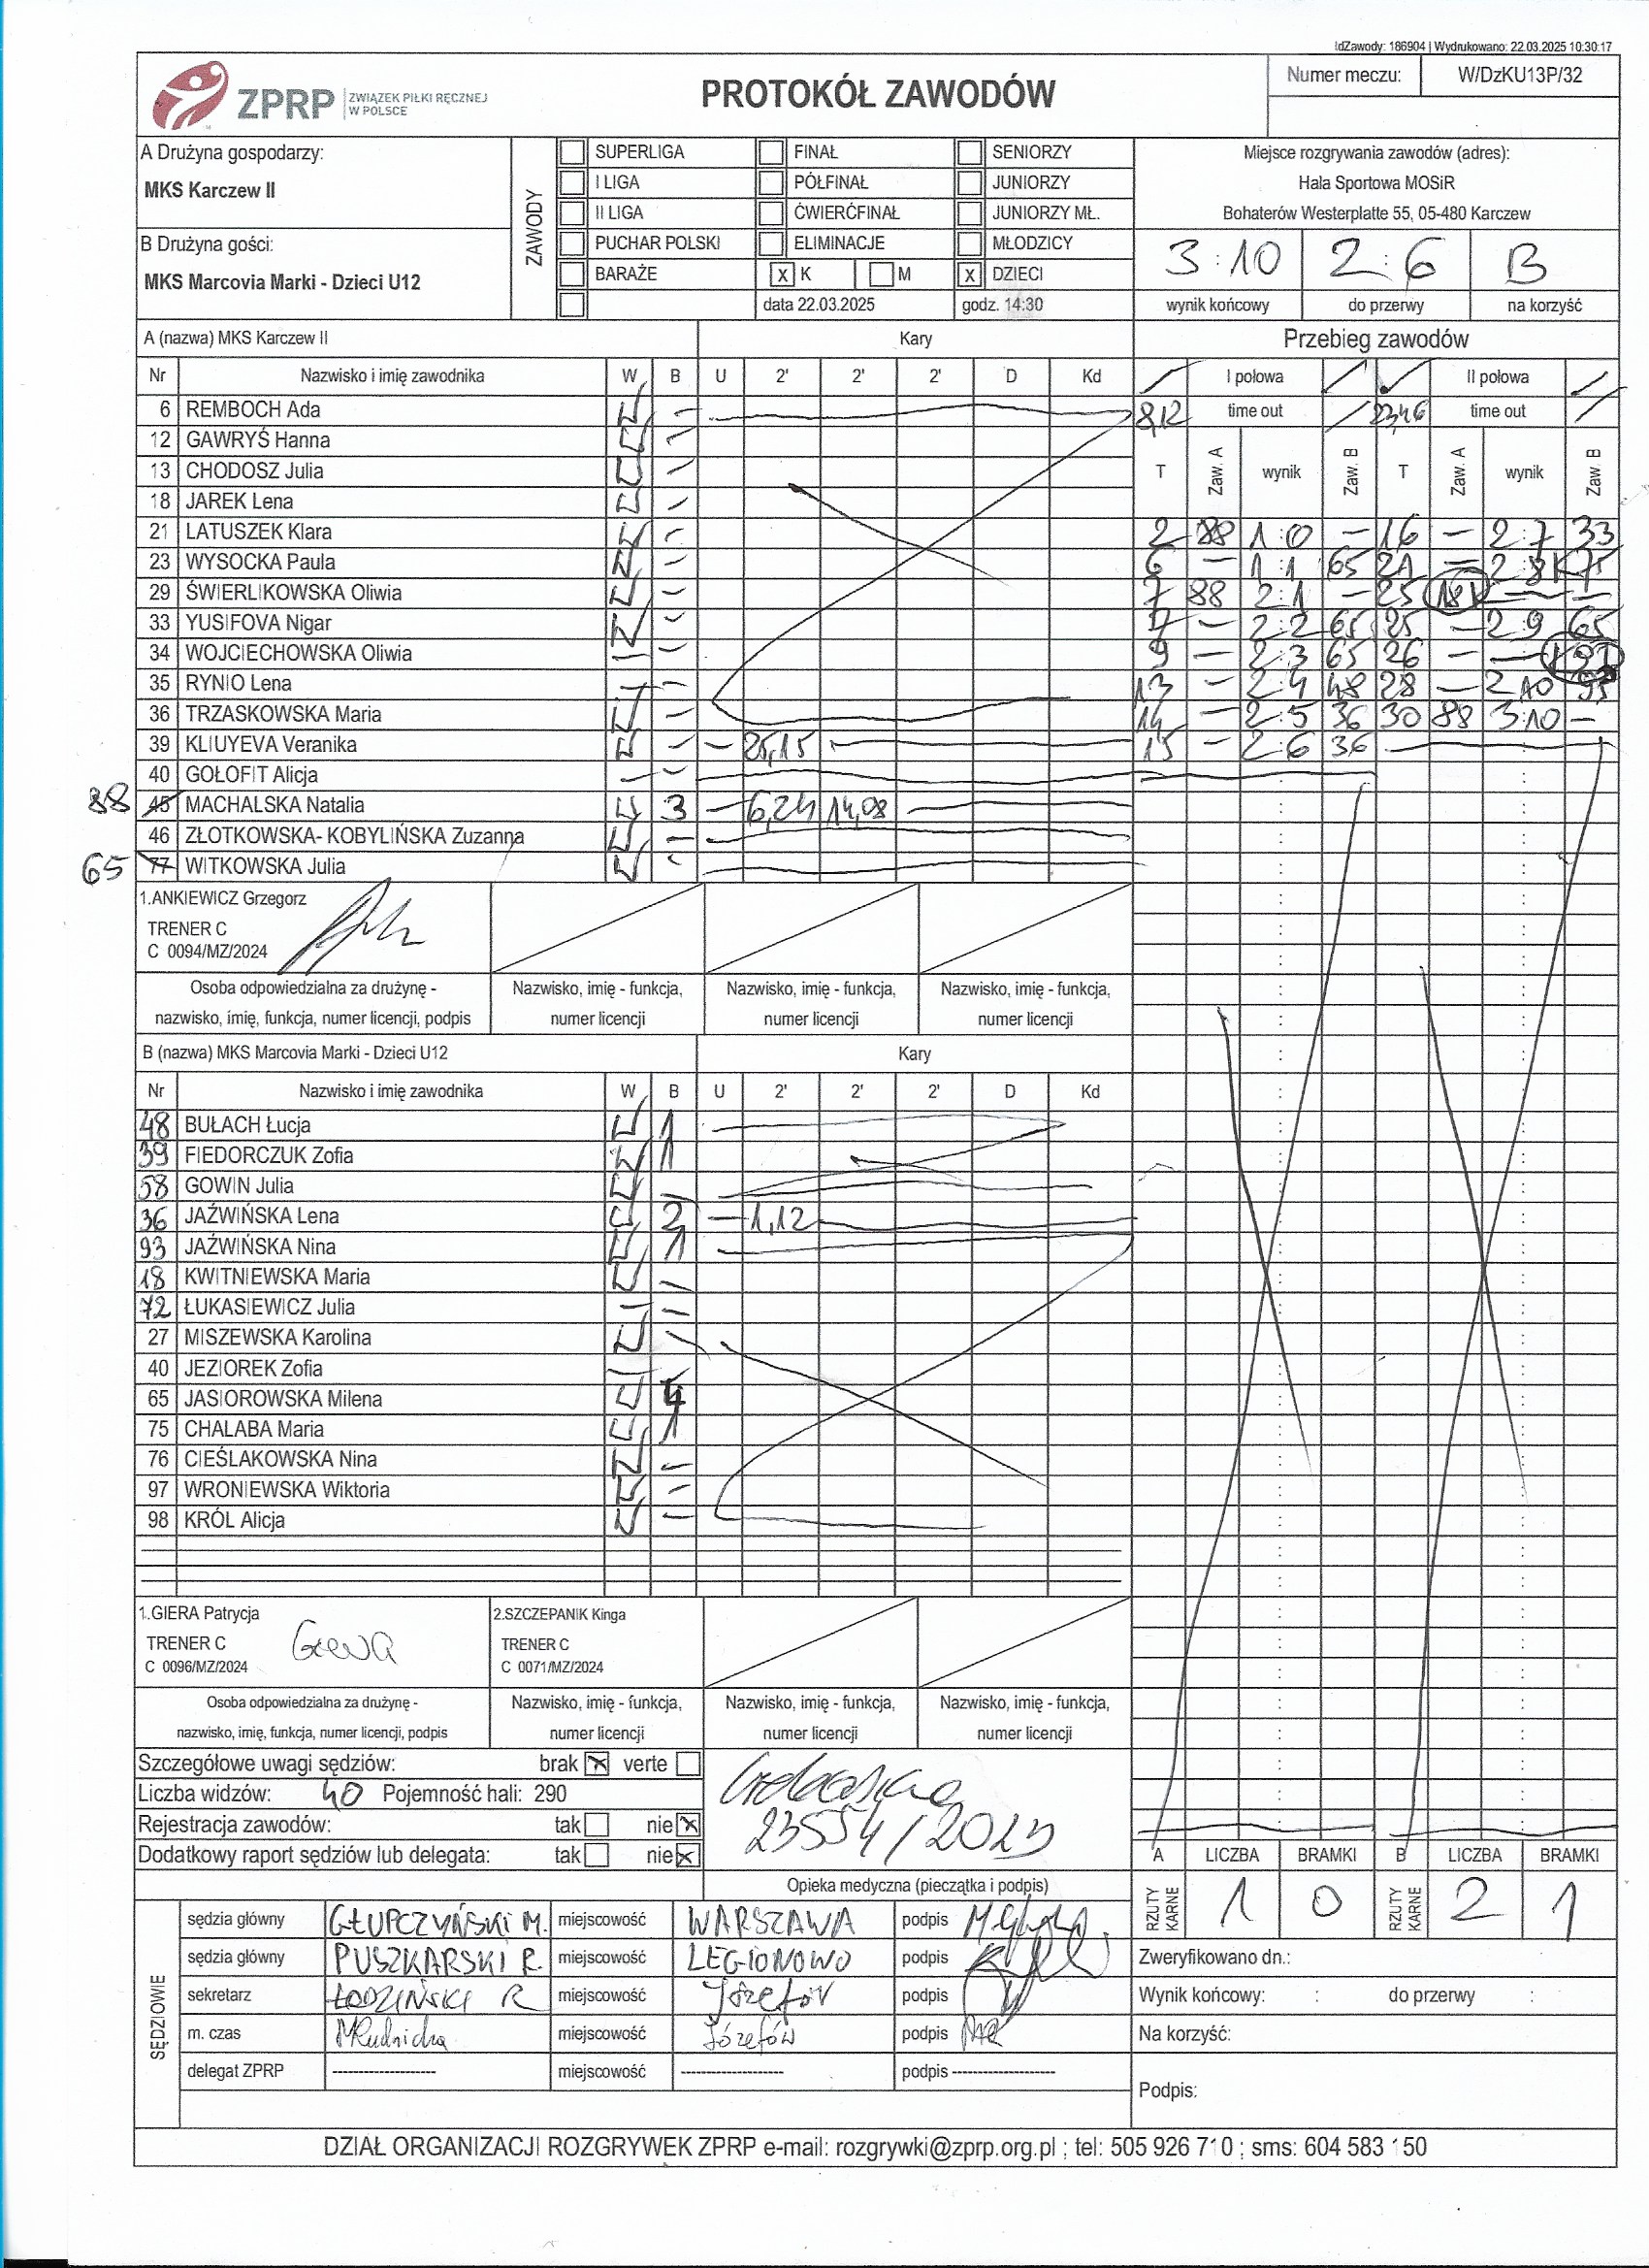 IdZawody: 186904 | Wydrukowano: 22.03.2025 10:30:17
ZPRP ZWIĄZEK PIŁKI RĘCZNEJ W POLSCE
PROTOKÓŁ ZAWODÓW
Numer meczu: W/DzKU13P/32
A Drużyna gospodarzy:
MKS Karczew II
B Drużyna gości:
MKS Marcovia Marki - Dzieci U12
ZAWODY
SUPERLIGA FINAŁ SENIORZY
I LIGA PÓŁFINAŁ JUNIORZY
II LIGA ĆWIERĆFINAŁ JUNIORZY MŁ.
PUCHAR POLSKI ELIMINACJE MŁODZICY
BARAŻE x K M x DZIECI
data 22.03.2025 godz. 14:30
Miejsce rozgrywania zawodów (adres):
Hala Sportowa MOSiR
Bohaterów Westerplatte 55, 05-480 Karczew
3:10 2:6 B
wynik końcowy do przerwy na korzyść
A (nazwa) MKS Karczew II Kary
Nr Nazwisko i imię zawodnika W B U 2' 2' 2' D Kd
6 REMBOCH Ada
12 GAWRYŚ Hanna
13 CHODOSZ Julia
18 JAREK Lena
21 LATUSZEK Klara
23 WYSOCKA Paula
29 ŚWIERLIKOWSKA Oliwia
33 YUSIFOVA Nigar
34 WOJCIECHOWSKA Oliwia
35 RYNIO Lena
36 TRZASKOWSKA Maria
39 KLIUYEVA Veranika - 25,15
40 GOŁOFIT Alicja
88 45 MACHALSKA Natalia 3 - 6,24 14,08
46 ZŁOTKOWSKA- KOBYLIŃSKA Zuzanna
65 77 WITKOWSKA Julia
Przebieg zawodów
I połowa II połowa
8,12 time out 23,46 time out
T Zaw. A wynik Zaw. B T Zaw. A wynik Zaw. B
2 88 1:0 - 16 - 2:7 33
6 - 1:1 65 21 - 2:8 K75
7 88 2:1 - 25 18K - -
- 2:2 65 25 - 2:9 65
9 - 2:3 65 26 - -
13 - 2:4 48 28 - 2:10 93
14 - 2:5 36 30 88 3:10 -
15 - 2:6 36
1.ANKIEWICZ Grzegorz
TRENER C
C 0094/MZ/2024
Osoba odpowiedzialna za drużynę - Nazwisko, imię - funkcja, Nazwisko, imię - funkcja, Nazwisko, imię - funkcja,
nazwisko, imię, funkcja, numer licencji, podpis numer licencji numer licencji numer licencji
B (nazwa) MKS Marcovia Marki - Dzieci U12 Kary
Nr Nazwisko i imię zawodnika W B U 2' 2' 2' D Kd
48 BUŁACH Łucja 1
39 FIEDORCZUK Zofia 1
58 GOWIN Julia
36 JAŹWIŃSKA Lena 2 - 1,12
93 JAŹWIŃSKA Nina 1
18 KWITNIEWSKA Maria
72 ŁUKASIEWICZ Julia
27 MISZEWSKA Karolina
40 JEZIOREK Zofia
65 JASIOROWSKA Milena 4
75 CHALABA Maria 1
76 CIEŚLAKOWSKA Nina
97 WRONIEWSKA Wiktoria
98 KRÓL Alicja
1.GIERA Patrycja 2.SZCZEPANIK Kinga
TRENER C Giera TRENER C
C 0096/MZ/2024 C 0071/MZ/2024
Osoba odpowiedzialna za drużynę - Nazwisko, imię - funkcja, Nazwisko, imię - funkcja, Nazwisko, imię - funkcja,
nazwisko, imię, funkcja, numer licencji, podpis numer licencji numer licencji numer licencji
Szczegółowe uwagi sędziów: brak x verte
Liczba widzów: 40 Pojemność hali: 290
Rejestracja zawodów: tak nie x
Dodatkowy raport sędziów lub delegata: tak nie x
Opieka medyczna (pieczątka i podpis)
A LICZBA BRAMKI B LICZBA BRAMKI
RZUTY KARNE 1 0 RZUTY KARNE 2 1
SĘDZIOWIE
sędzia główny GŁUPCZYŃSKI M. miejscowość WARSZAWA podpis
sędzia główny PUSZKARSKI R. miejscowość LEGIONOWO podpis
sekretarz ŁODZIŃSKI R miejscowość Józefów podpis
m. czas MRudnicka miejscowość Józefów podpis
delegat ZPRP -------------------- miejscowość -------------------- podpis --------------------
Zweryfikowano dn.:
Wynik końcowy: : do przerwy :
Na korzyść:
Podpis:
DZIAŁ ORGANIZACJI ROZGRYWEK ZPRP e-mail: rozgrywki@zprp.org.pl ; tel: 505 926 710 ; sms: 604 583 150